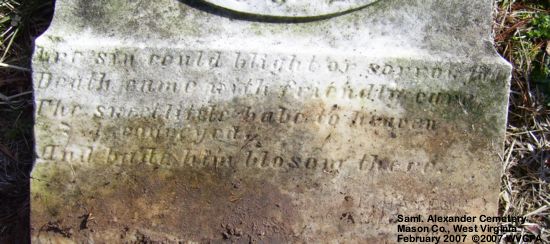 Ere sin could blight or sorrow
Death came with friendly care
The sweet little babe to heaven
conveyed,
And bade him blossom there.
Saml. Alexander Cemetery,
Mason Co., West Virginia
February 2007 ©2007 WVGPA